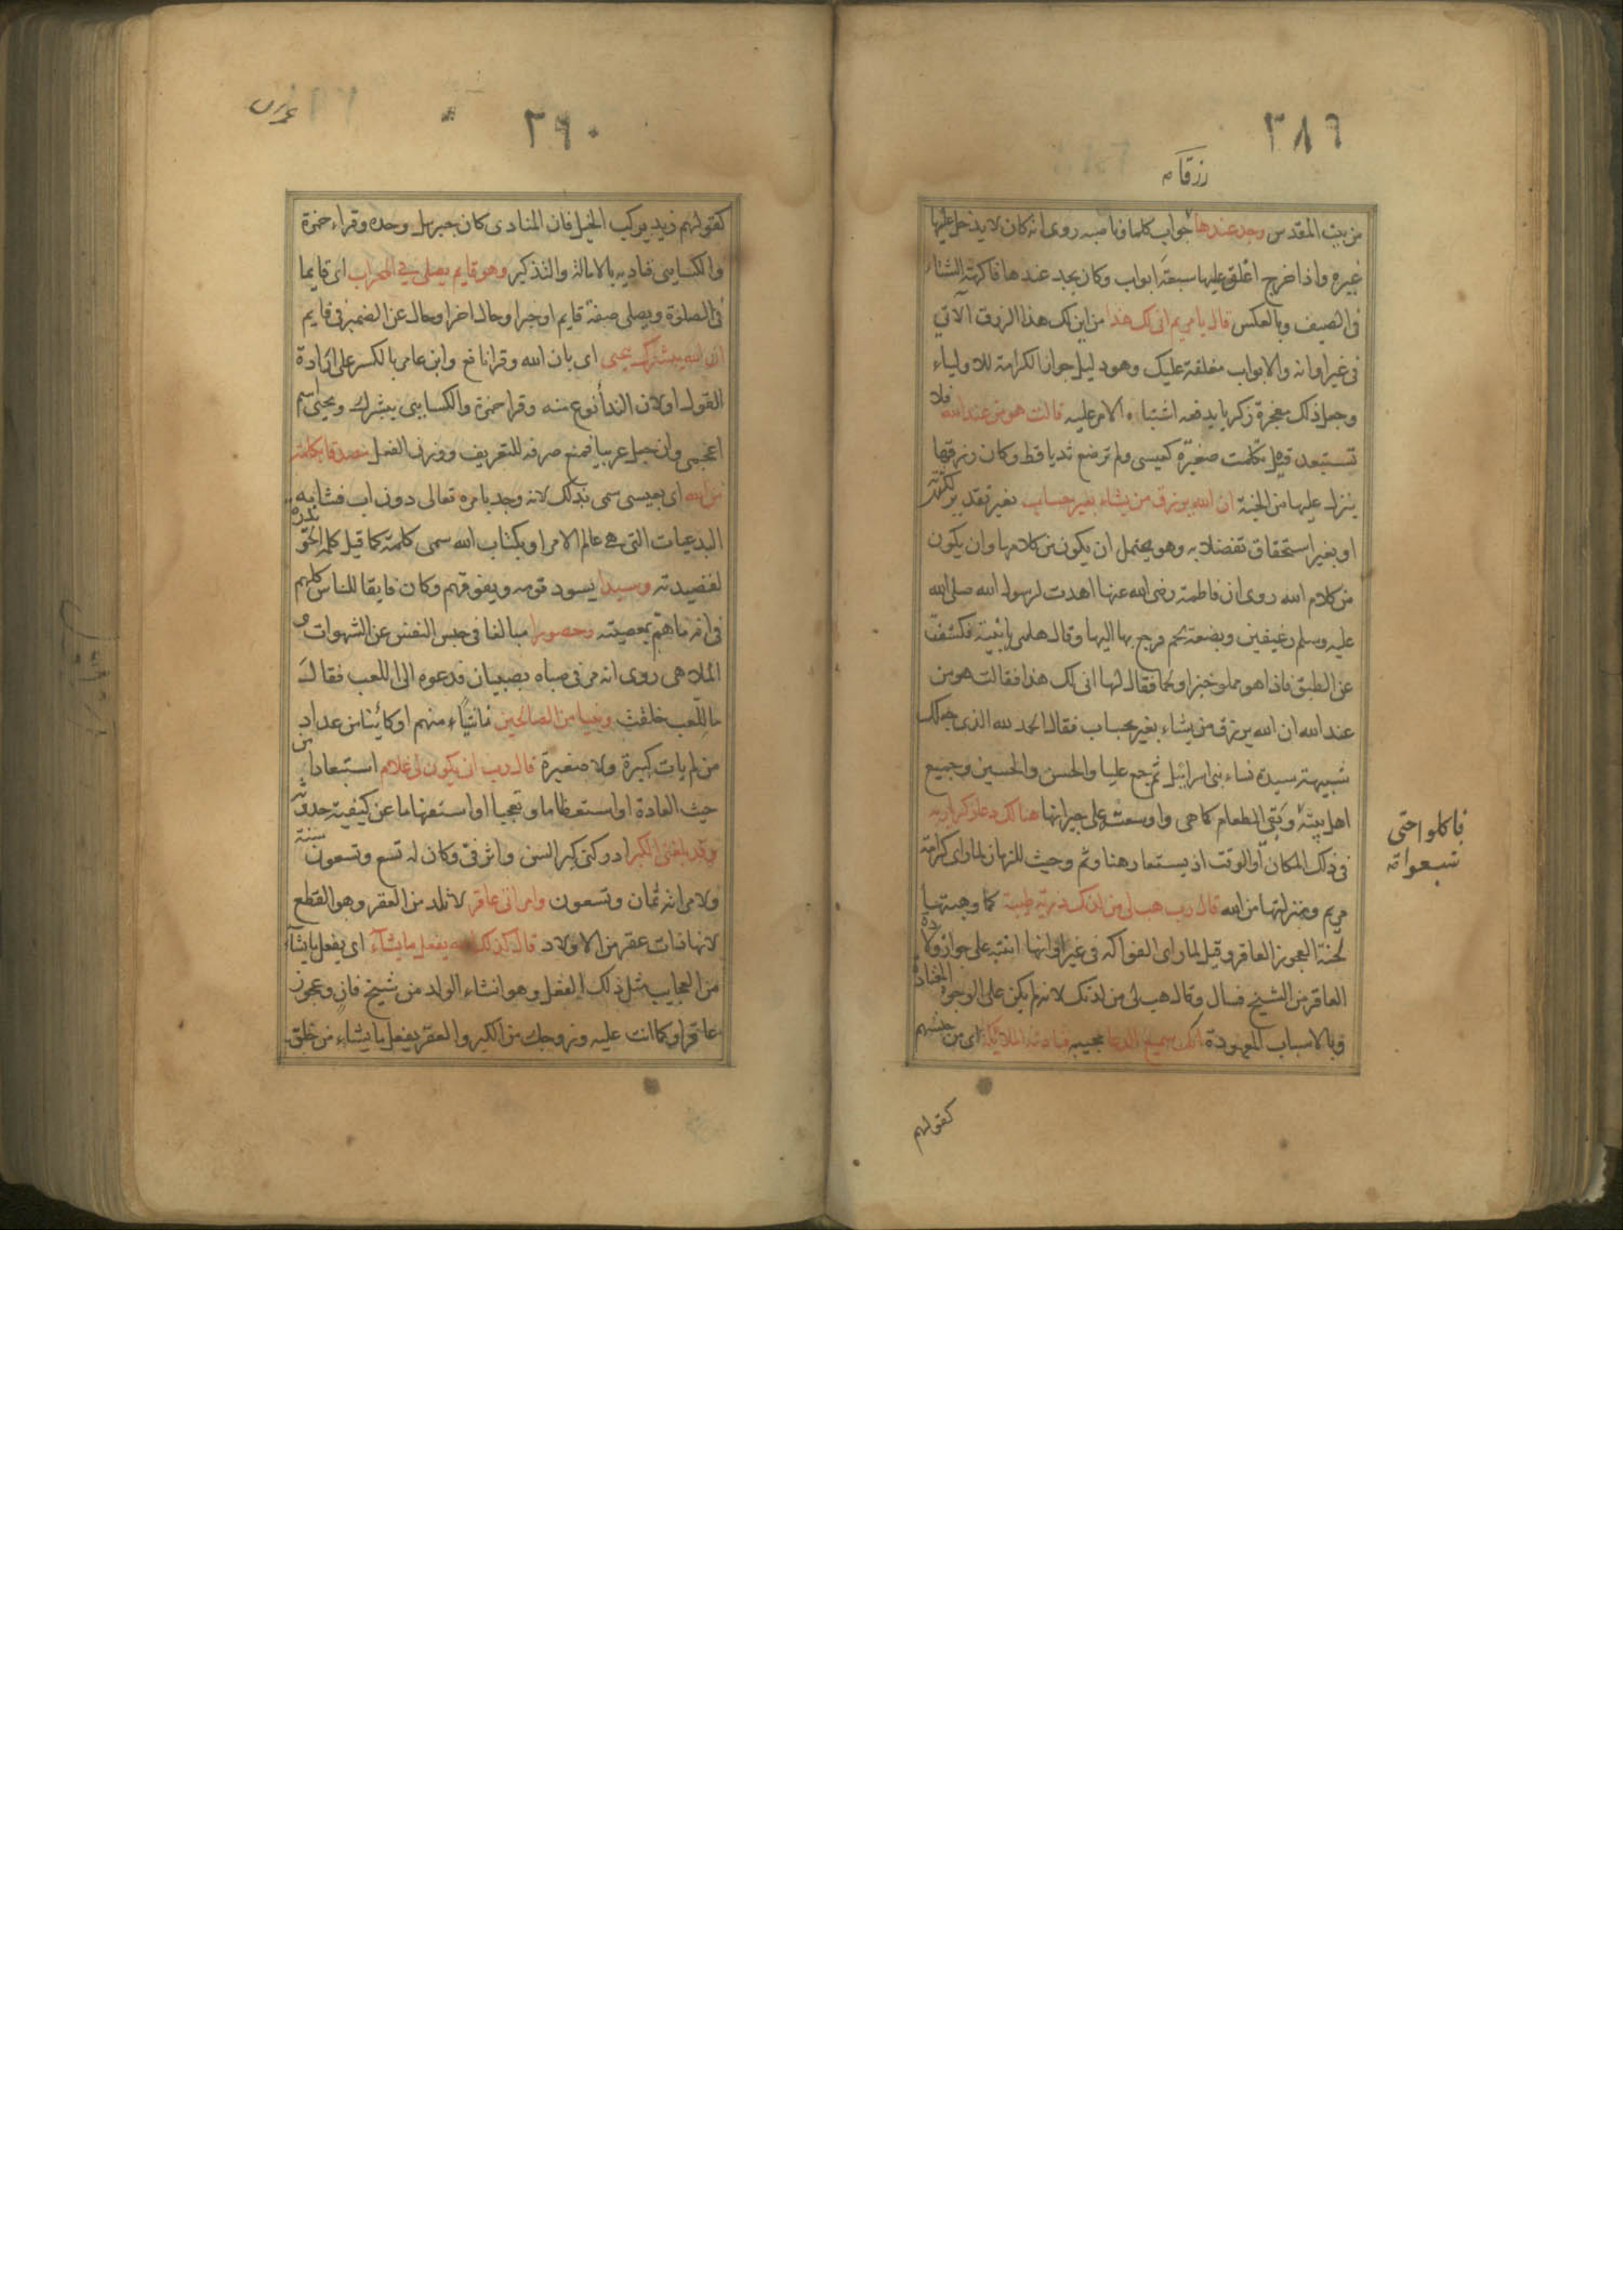 ٣٨٩
رزقا م
من بيت المقدس وجد عندها جواب كلما وناصبه روى انه كان لا يدخل عليها
غيره واذا خرج اغلق عليها سبعة ابواب وكان يجد عندها فاكهة الشتاء
فى الصيف وبالعكس قال يا مريم انى لك هذا من اين لك هذا الرزق الآتي
فى غير اوانه والابواب مغلقة عليك وهو دليل جواز الكرامة للاولياء
وجعل ذلك معجزة زكريا يدفعه اشتباه الامر عليه قالت هو من عند الله فلا
تستبعد قيل تكلمت صغيرة كعيسى ولم ترضع ثديا قط وكان رزقها
ينزل عليها من الجنة ان الله يرزق من يشاء بغير حساب بغير تقدير لكثرته
او بغير استحقاق تفضلا به وهو يحتمل ان يكون من كلامها وان يكون
من كلام الله روى ان فاطمة رضى الله عنها اهدت لرسول الله صلى الله
عليه وسلم رغيفين وبضعة لحم فرجع بها اليها وقال هلمى يا بنية فكشفت
عن الطبق فاذا هو مملو خبزا ولحما فقال لها انى لك هذا فقالت هو من
عند الله ان الله يرزق من يشاء بغير حساب فقال الحمد لله الذى جعلك
شبيهة سيدة نساء بنى اسرائيل ثم جمع عليا والحسن والحسين وجميع
اهل بيته وبقى الطعام كما هى واوسعت على جيرانها هنالك دعا زكريا ربه
فاكلوا حتى
شبعوا مه
فى ذلك المكان أو الوقت اذ يستعار هنا وثم وحيث للزمان لما راى كرامة
مريم ومنزلتها من الله قال رب هب لى من لدنك ذرية طيبة كما وهبتها
لحنة العجوز العاقر وقيل لما راى الفواكه فى غير اوانها انتبه على جواز ولادة
العاقر من الشيخ فسال وقال هب لى من لدنك لانه لم يكن على الوجوه المعتادة
وبالاسباب المعهودة انك سميع الدعا مجيبه فنادته الملائكة اى من جنسهم
كقولهم
٣٩٠
كقولهم زيد يركب الخيل فان المنادى كان جبريل وحده وقراء حمزة
والكسايى فناديه بالامالة والتذكير وهو قايم يصلى في المحراب اى قايما
فى الصلوة ويصلى صفة قايم او خبر او حال اخر او حال عن الضمير فى قايم
ان الله يبشرك بيحيى اى بان الله وقرا نافع وابن عامر بالكسر على ارادة
القول او لان الندأ نوع منه وقرا حمزة والكسايى يبشرك ويحيى اسم
اعجمى وان جعل عربيا فمنع صرفه للتعريف ووزن الفعل مصدقا بكلمة
من الله اى بعيسى سمى بذلك لانه وجد بامره تعالى دون اب فشابه
البدعيات التى هى عالم الامر او بكتاب الله سمى كلمة كما قيل كلمة الحويدرة
لقصيدته وسيدا يسود قومه ويفوقهم وكان فايقا للناس كلهم
فى انه ما هم بمعصيته وحصورا مبالغا فى حبس النفس عن الشهوات و
الملاهى روى انه مر فى صباه بصبيان فدعوه الى اللعب فقال
ما للعب خلقت ونبيا من الصالحين ناشياً منهم او كائنا من عداد
من لم يات كبيرة ولا صغيرة قال رب انى يكون لى غلام استبعادا من
حيث العادة او استعظاما وتعجبا او استفهاما عن كيفية حدوثه
وقد بلغنى الكبر ادركنى كبر السن واثر فىّ وكان له تسع وتسعون سنة
ولامراته ثمان وتسعون وامراتى عاقر لا تلد من العقر وهو القطع
لانها ذات عقر من الاولاد قال كذلك الله يفعل ما يشآء اى يفعل ما يشآء
من العجايب مثل ذلك الفعل وهو انشاء الولد من شيخ فان وعجوز
عاقر او كما انت عليه وزوجك من الكبر والعقر يفعل ما يشاء من خلق